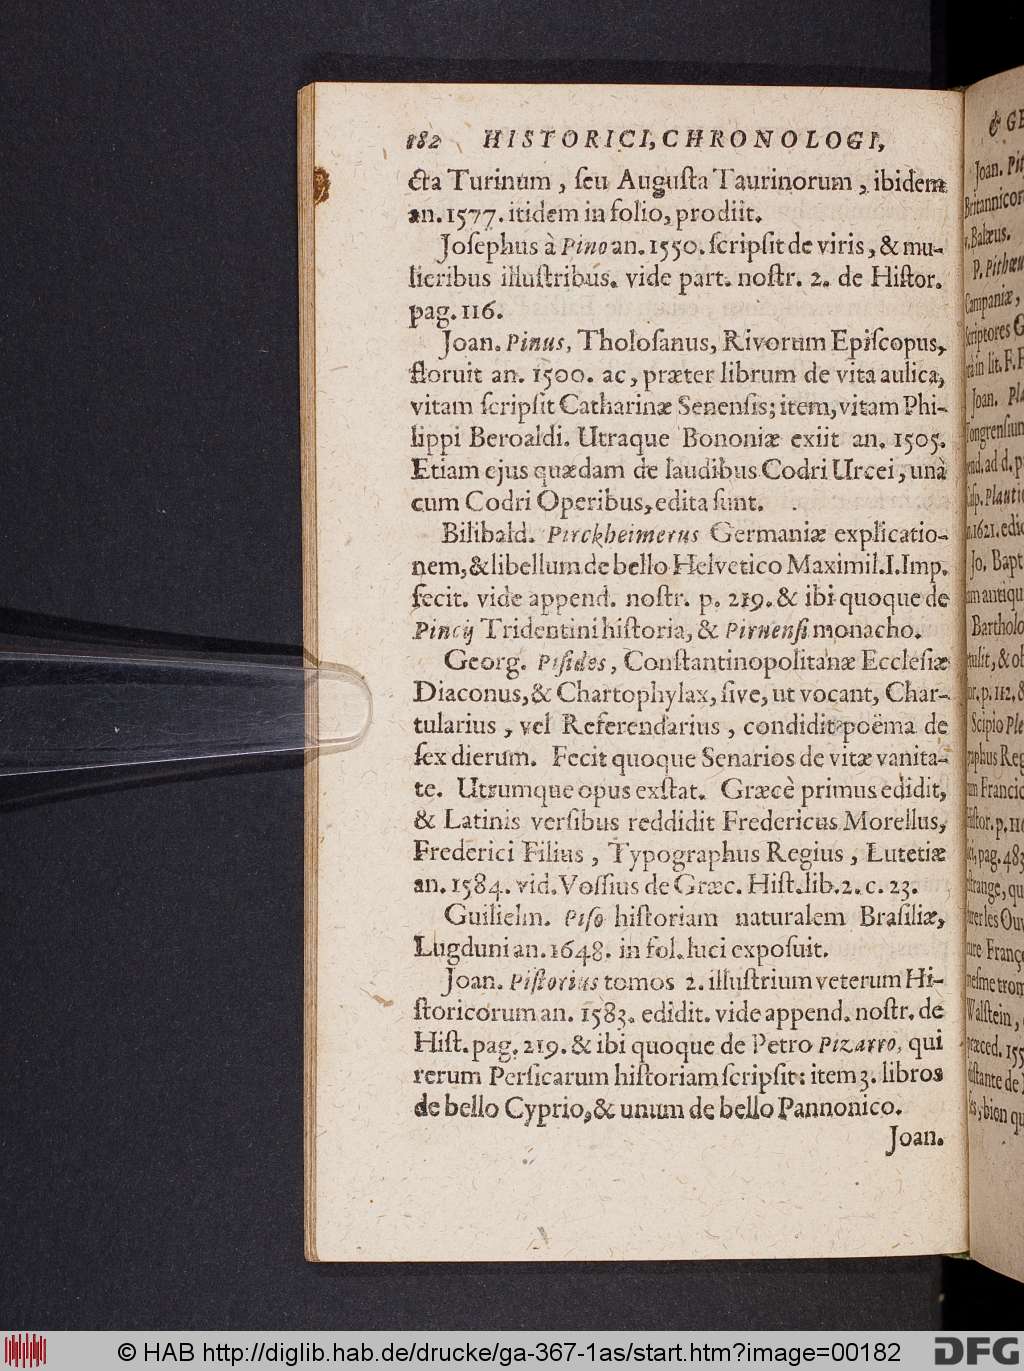 182 HISTORICI, CHRONOLOGI,
cta Turinum, ſeu Auguſta Taurinorum, ibidem
an. 1577. itidem in folio, prodiit.
Joſephus à Pino an. 1550. ſcripſit de viris, & mu-
lieribus illuſtribus. vide part. noſtr. 2. de Hiſtor.
pag. 116.
Joan. Pinus, Tholoſanus, Rivorum Epiſcopus,
floruit an. 1500. ac, præter librum de vita aulica,
vitam ſcripſit Catharinæ Senenſis; item, vitam Phi-
lippi Beroaldi. Utraque Bononiæ exiit an. 1505.
Etiam ejus quædam de laudibus Codri Urcei, unà
cum Codri Operibus, edita ſunt.
Bilibald. Pirckheimerus Germaniæ explicatio-
nem, & libellum de bello Helvetico Maximil. I. Imp.
fecit. vide append. noſtr. p. 219. & ibi quoque de
Pincij Tridentini hiſtoria, & Pirnenſi monacho.
Georg. Piſides, Conſtantinopolitanæ Eccleſiæ
Diaconus, & Chartophylax, ſive, ut vocant, Char-
tularius, vel Referendarius, condidit poëma de
ſex dierum. Fecit quoque Senarios de vitæ vanita-
te. Utrumque opus exſtat. Græcè primus edidit,
& Latinis verſibus reddidit Fredericus Morellus,
Frederici Filius, Typographus Regius, Lutetiæ
an. 1584. vid. Voſſius de Græc. Hiſt. lib. 2. c. 23.
Guilielm. Piſo hiſtoriam naturalem Braſiliæ,
Lugduni an. 1648. in fol. luci expoſuit.
Joan. Piſtorius tomos 2. illuſtrium veterum Hi-
ſtoricorum an. 1583. edidit. vide append. noſtr. de
Hiſt. pag. 219. & ibi quoque de Petro Pizarro, qui
rerum Perſicarum hiſtoriam ſcripſit: item 3. libros
de bello Cyprio, & unum de bello Pannonico.
Joan.
& GE
Joan. Pit
Britannicor
v. Balæus.
P. Pithœu
Campaniæ,
Scriptores G
in lit. F. F
Joan. Pla
Tongrenſium
end. ad d. p
Caſp. Plautio
n. 1621. edic
Jo. Bapt
am antiqu
Bartholo
tulit, & ob
or. p. 112. &
Scipio Ple
graphus Reg
um Francic
Hiſtor. p. 116
pag. 483
eſtrange, qu
rer les Ouv
ire Franço
meſme trom
Walſtein,
præced. 155
diſtante de
bien qu
© HAB http://diglib.hab.de/drucke/ga-367-1as/start.htm?image=00182
DFG